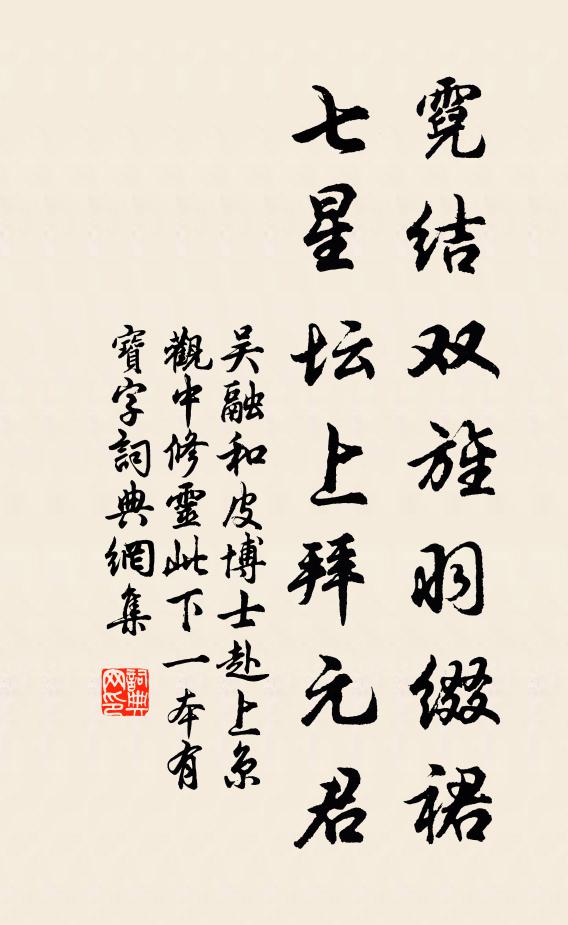 霓结双旌羽缀裙
七星坛上拜元君
吴融和皮博士赴上京
觀中修靈此下一本有
寶字詞典網集
詞典
网印